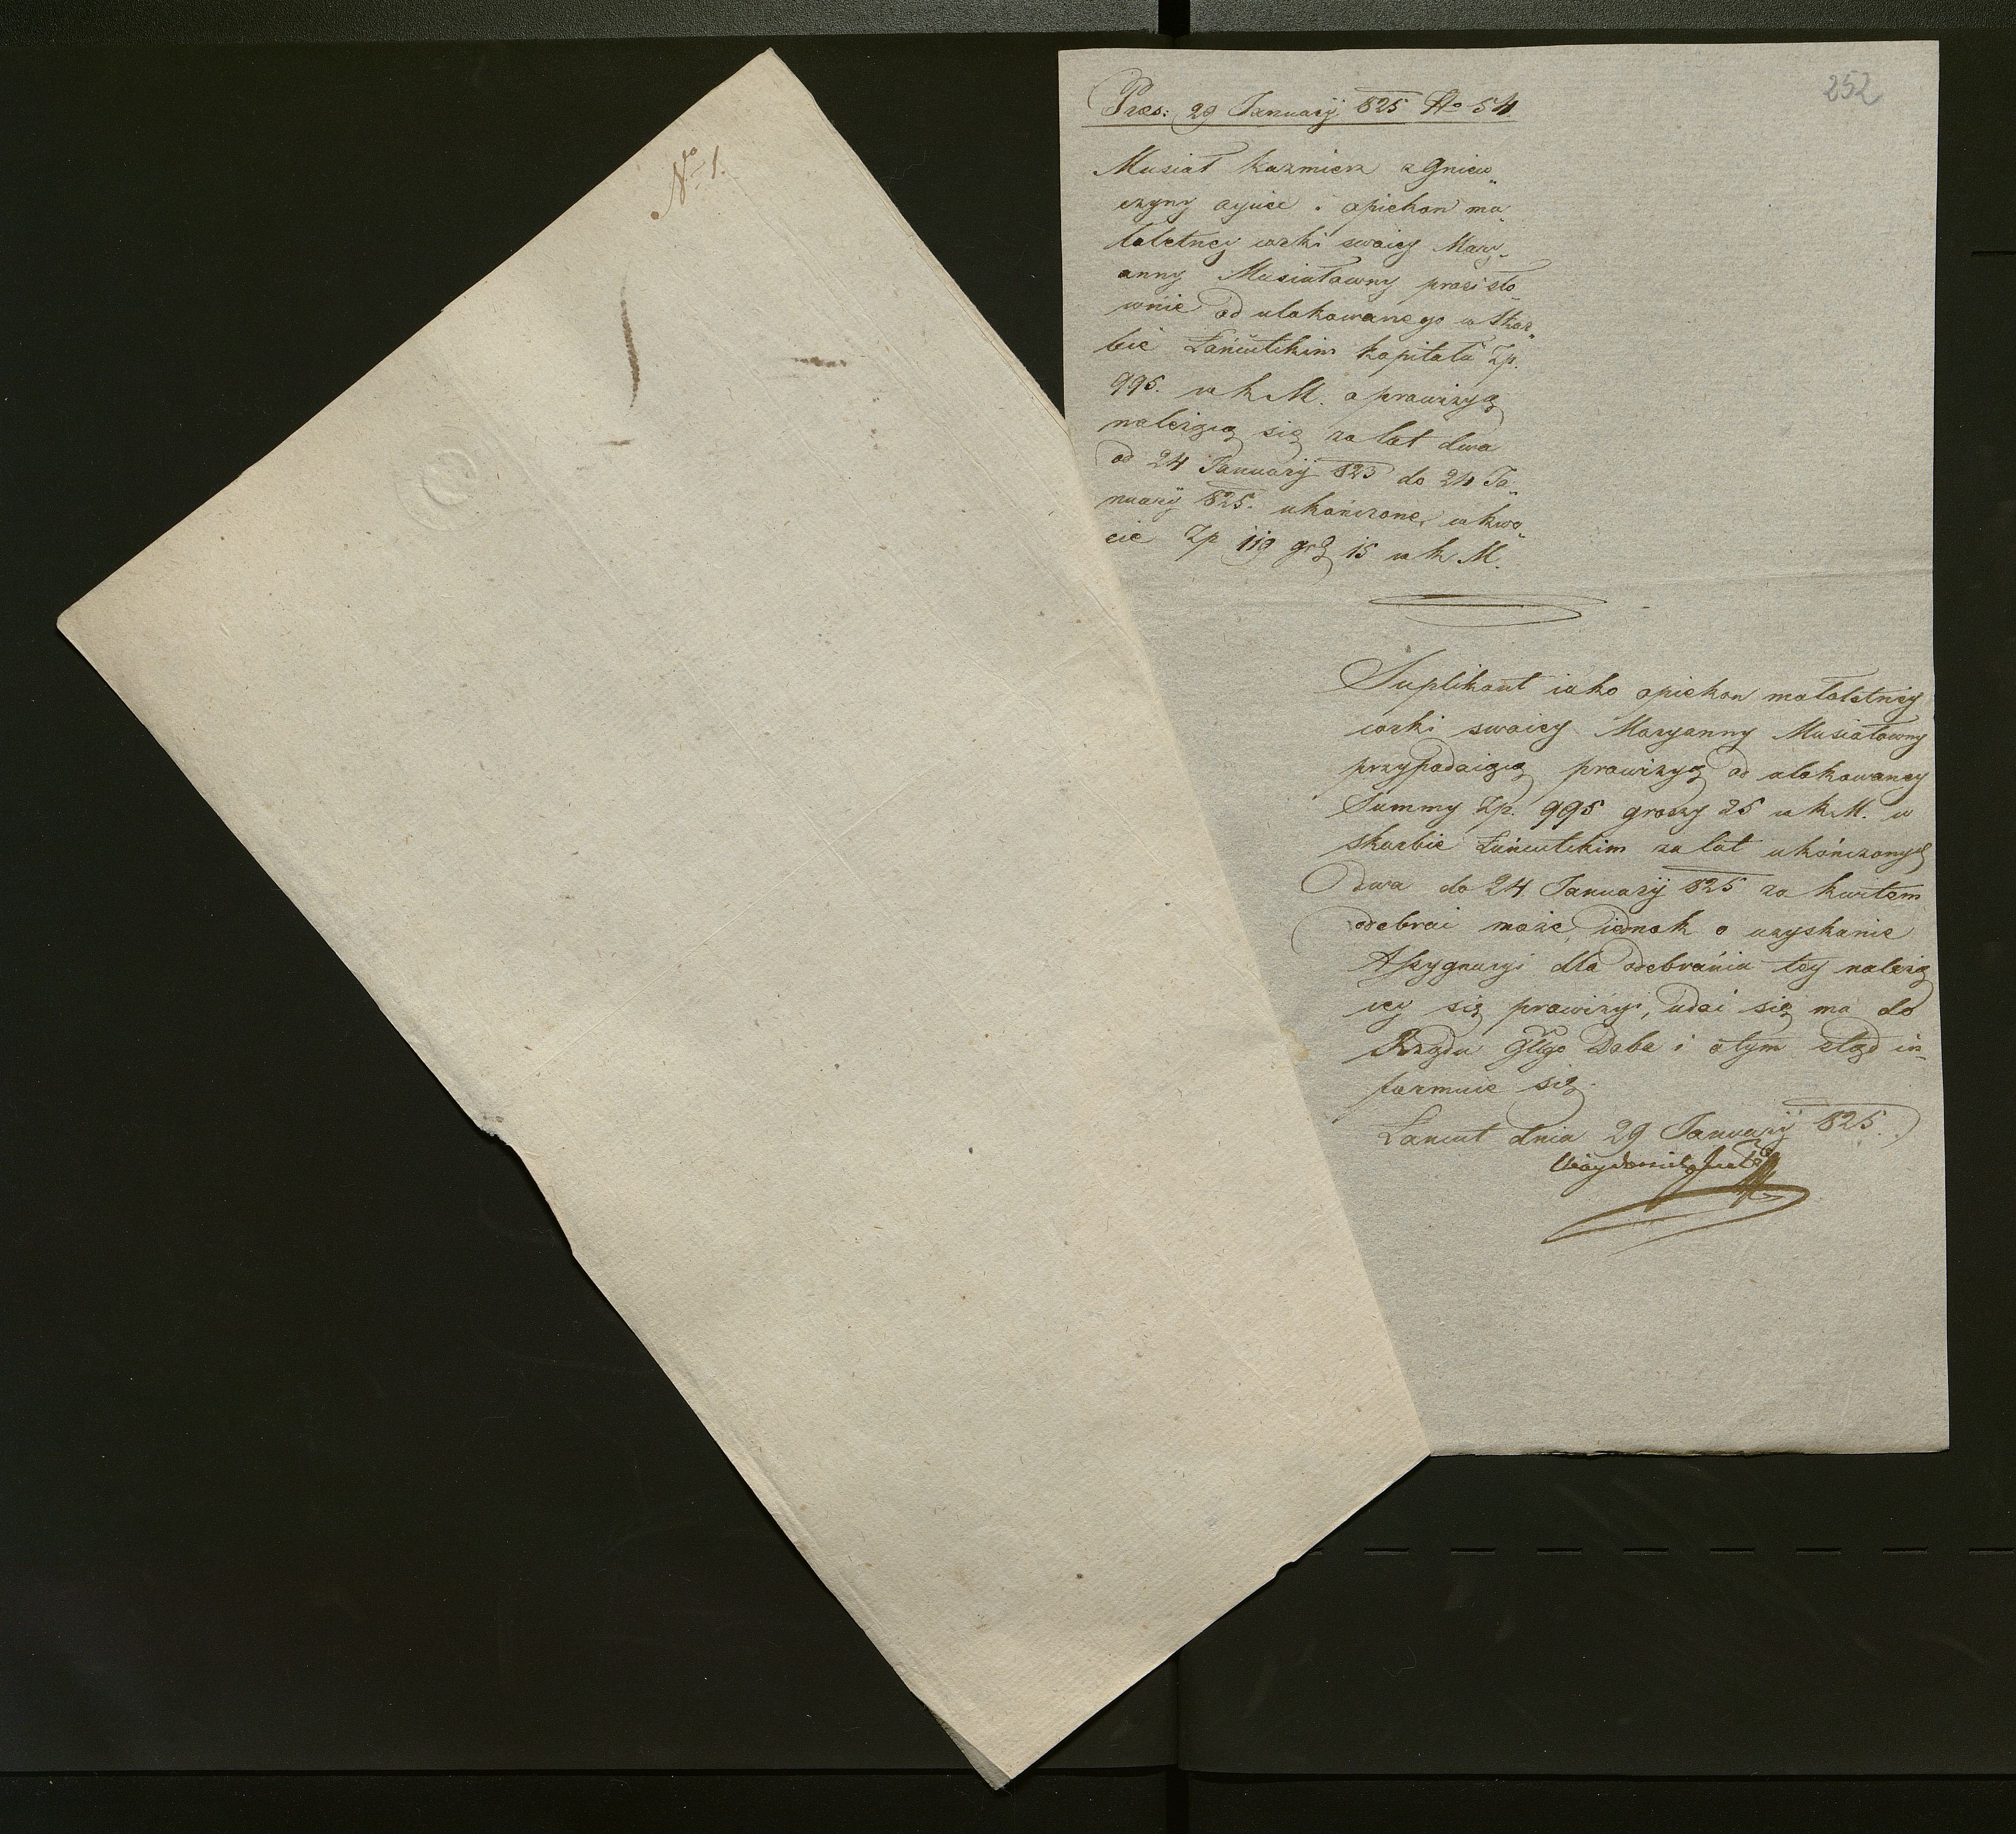 No 1.
252
Præs: 29 Januarij 825 No 54
Musiał Kazmierz z Gniew„
czyny oyciec i opiekon ma„
łoletney corki swoiey Mary„
anny Musiałowny prosi sto„
wnie od ulokowanego w Skar„
bie Łańcutckim kapitału Zp.
995. w k. M. o prowizyą
należącą się za lat dwa
od 24 Januarij 823 do 24 Ja„
nuarij 825. ukończone, w kwo„
cie Zp 119 gr 15 w k. M.
Suplikant iako opiekon małoletniey
corki swoiey Maryanny Musiałowny
przypadaiącą prowizyą od ulokowaney
Summy Zp. 995 groszy 25 w k. M. w
skarbie Łańcutckim za lat ukończonych
Dwa do 24 Januarij 825 za kwitem
odebrać może, iednak o uzyskanie
Assygnacyi dla odebrania tey należą
cey się prowizyi, udać się ma do
Rządu Dobr i o tym ztąd in„
formuie się.
Łancut dnia 29 Januarij 825.